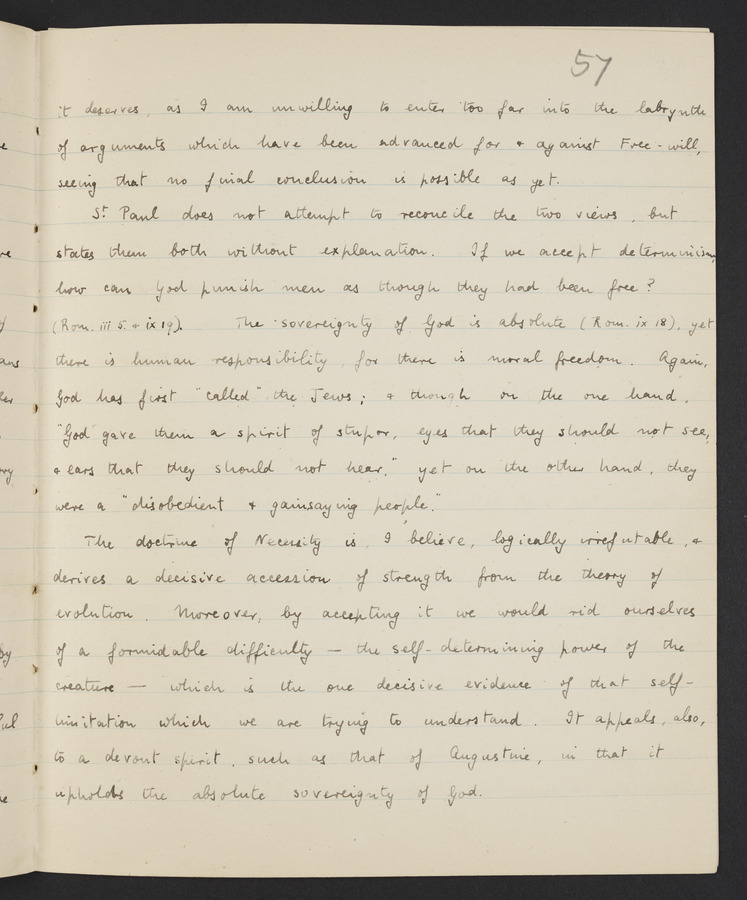 57
it deserves, as I am unwilling to enter too far into the labrynth
of arguments which have been advanced for & against Free-will,
seeing that no final conclusion is possible as yet.
St Paul does not attempt to reconcile the two views, but
states them both without explanation. If we accept determinism,
how can God punish men as though they had been free?
(Rom. iii 5. & ix 19). The sovereignty of God is absolute (Rom. ix 18), yet
there is human responsibility, for there is moral freedom. Again,
God has first "called" the Jews; & though on the one hand,
"God gave them a spirit of stupor, eyes that they should not see,
& ears that they should not hear," yet on the other hand, they
were a "disobedient & gainsaying people."
The doctrine of Necessity is, I believe, logically irrefutable, &
derives a decisive accession of strength from the theory of
evolution. Moreover, by accepting it we would rid ourselves
of a formidable difficulty — the self-determining power of the
creature — which is the one decisive evidence of that self-
limitation which we are trying to understand. It appeals, also,
to a devout spirit, such as that of Augustine, in that it
upholds the absolute sovereignty of God.